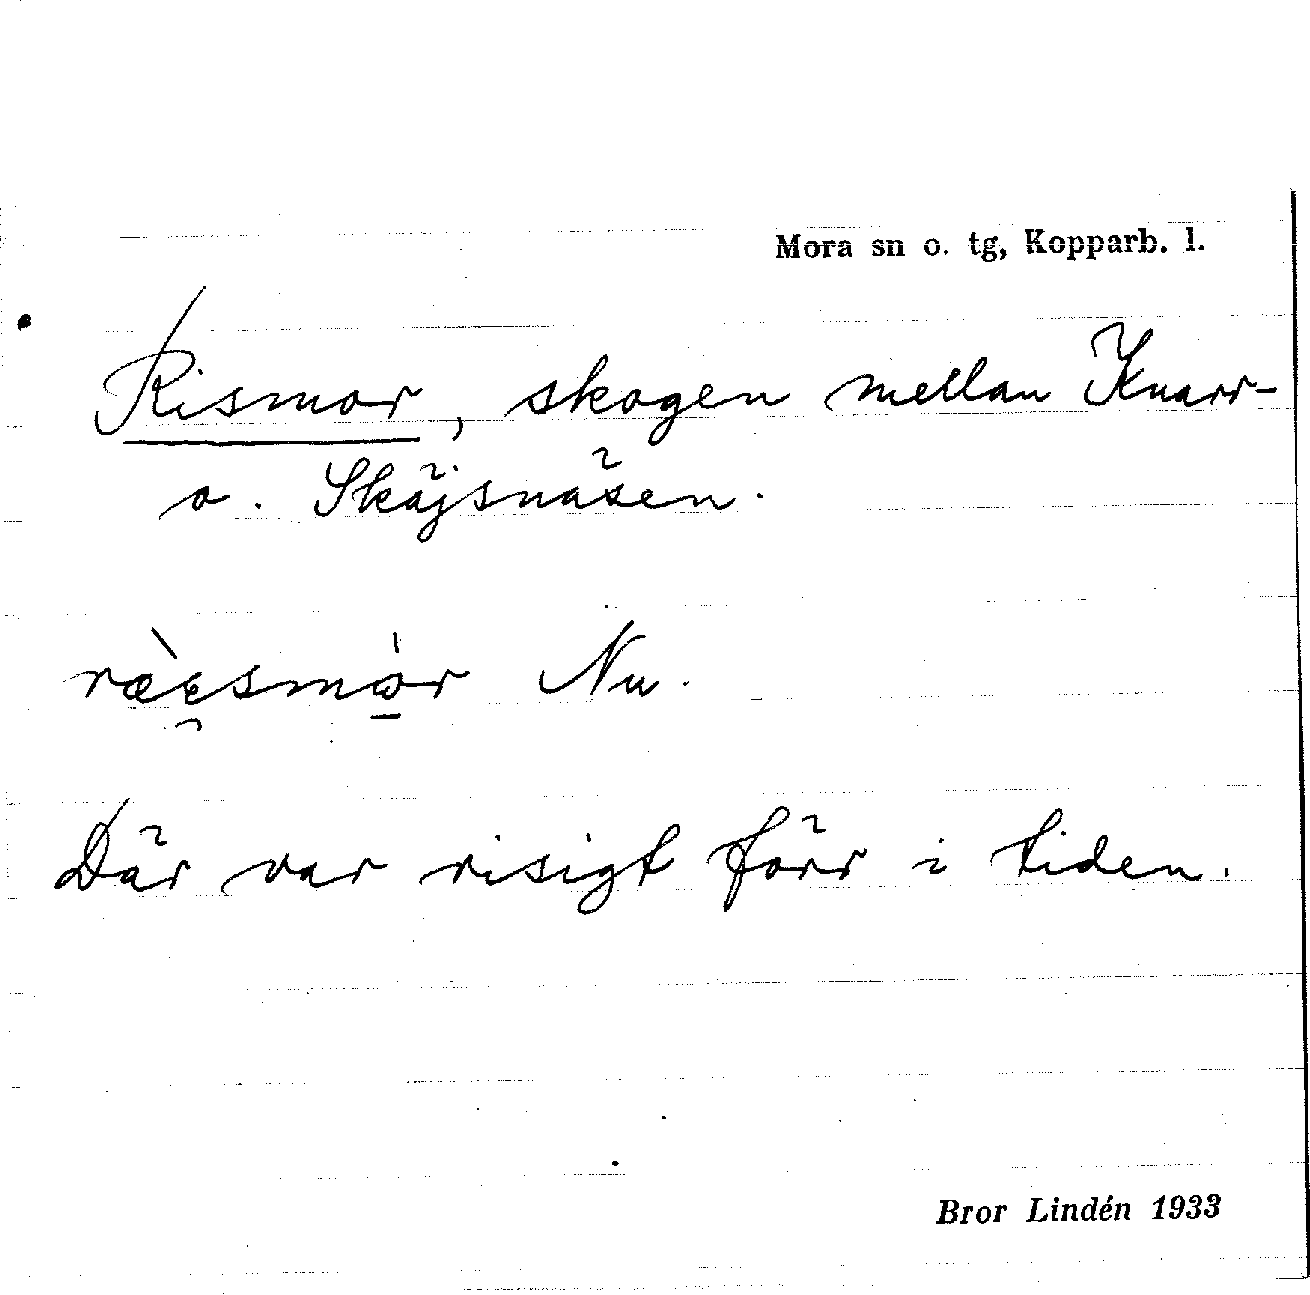 Mora sn o. tg, Kopparb. l.
Rismor, skogen mellan Knarr-
o. Skäjsnäsen.
ræ̀e̯smò̱r Nu.
Där var risigt förr i tiden.
Bror Lindén 1933